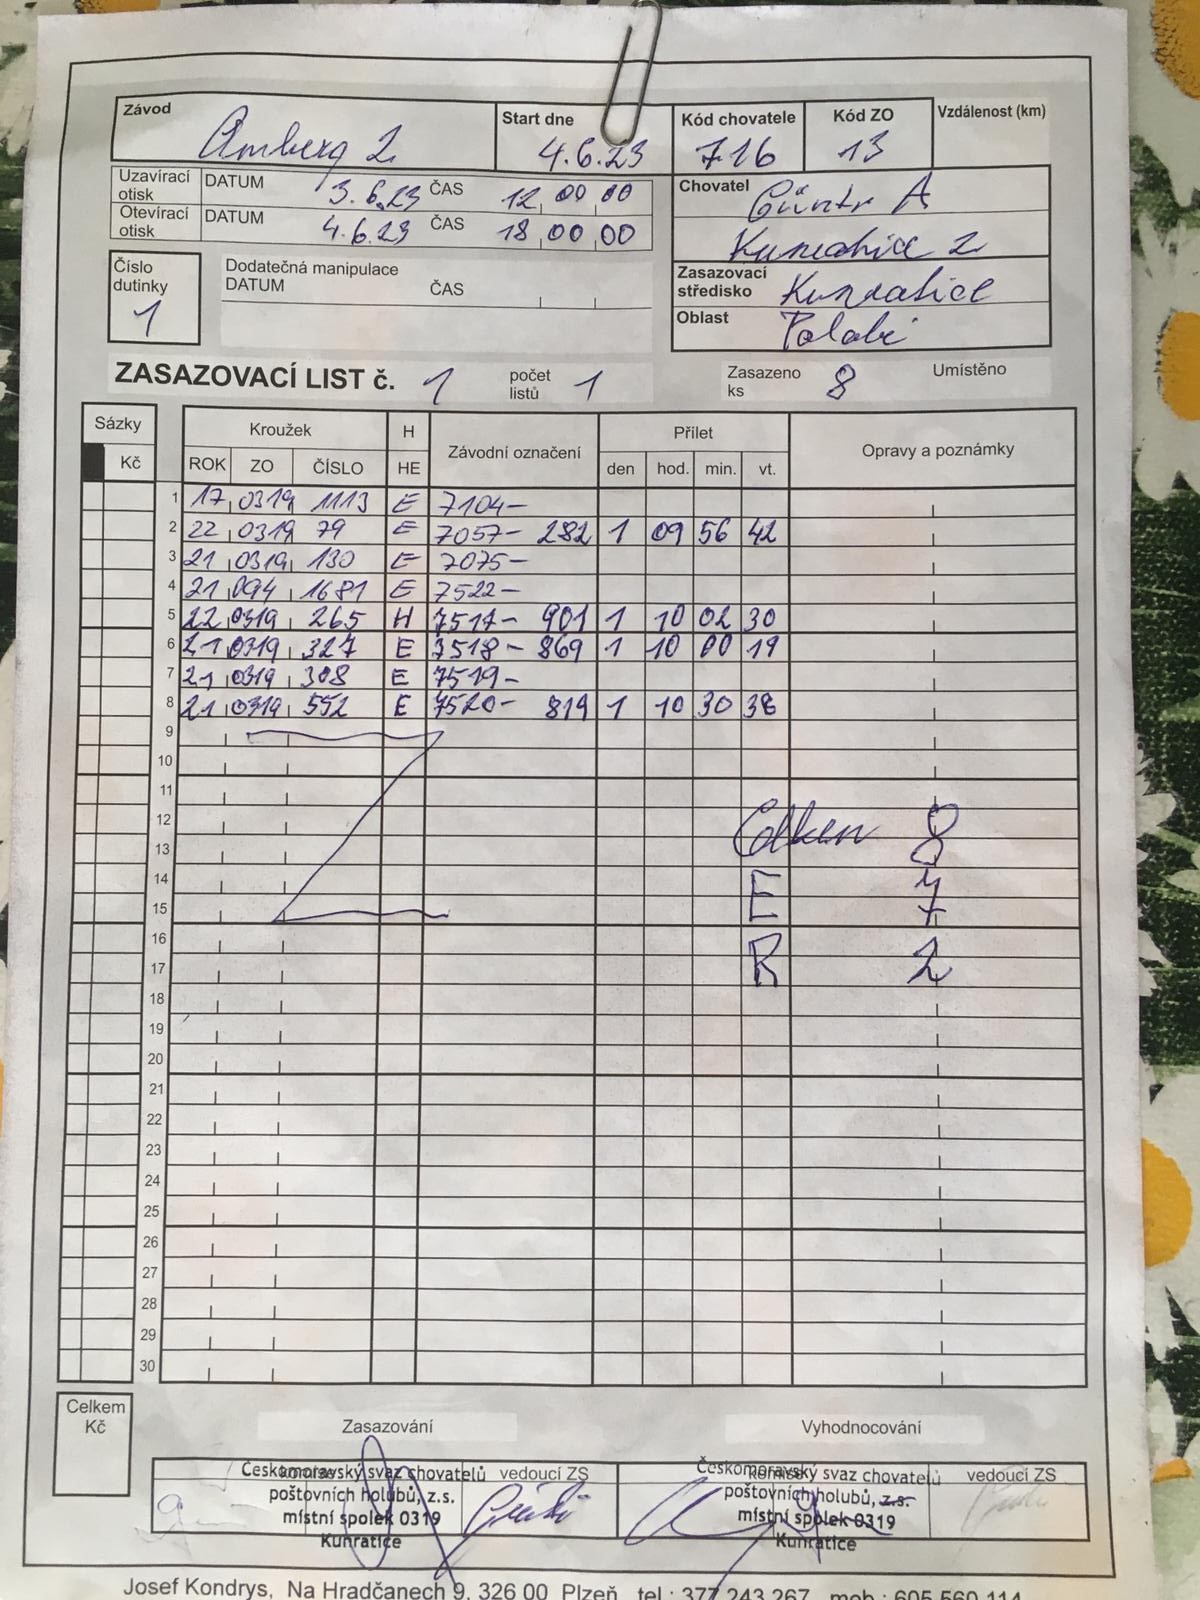 Závod Amberg 2 Start dne 4.6.23 Kód chovatele 716 Kód ZO 13 Vzdálenost (km)
Uzavírací otisk DATUM 3.6.23 ČAS 12 00 00
Otevírací otisk DATUM 4.6.23 ČAS 18 00 00
Chovatel Güntr A
Kunratice 2
Číslo dutinky 1
Dodatečná manipulace
DATUM ČAS
Zasazovací středisko Kunratice
Oblast Polabí
ZASAZOVACÍ LIST č. 1 počet listů 1 Zasazeno ks 8 Umístěno
Sázky Kroužek H Závodní označení Přílet Opravy a poznámky
Kč ROK ZO ČÍSLO HE den hod. min. vt.
1 17 0319 1113 E 7104-
2 22 0319 79 E 7057- 282 1 09 56 42
3 21 0319 130 E 7075-
4 21 094 1681 E 7522-
5 22 0319 265 H 7517- 901 1 10 02 30
6 21 0319 327 E 7518- 869 1 10 00 19
7 21 0319 308 E 7519-
8 21 0319 552 E 7520- 819 1 10 30 38
9
10
11
12 Celkem 8
13
14 E 7
15
16 R 2
17
18
19
20
21
22
23
24
25
26
27
28
29
30
Celkem Kč
Zasazování Vyhodnocování
Českomoravský svaz chovatelů vedoucí ZS Českomoravský svaz chovatelů vedoucí ZS
poštovních holubů, z.s. poštovních holubů, z.s.
místní spolek 0319 místní spolek 0319
Kunratice Kunratice
Josef Kondrys, Na Hradčanech 9, 326 00 Plzeň tel.: 377 243 267 mob.: 605 560 114